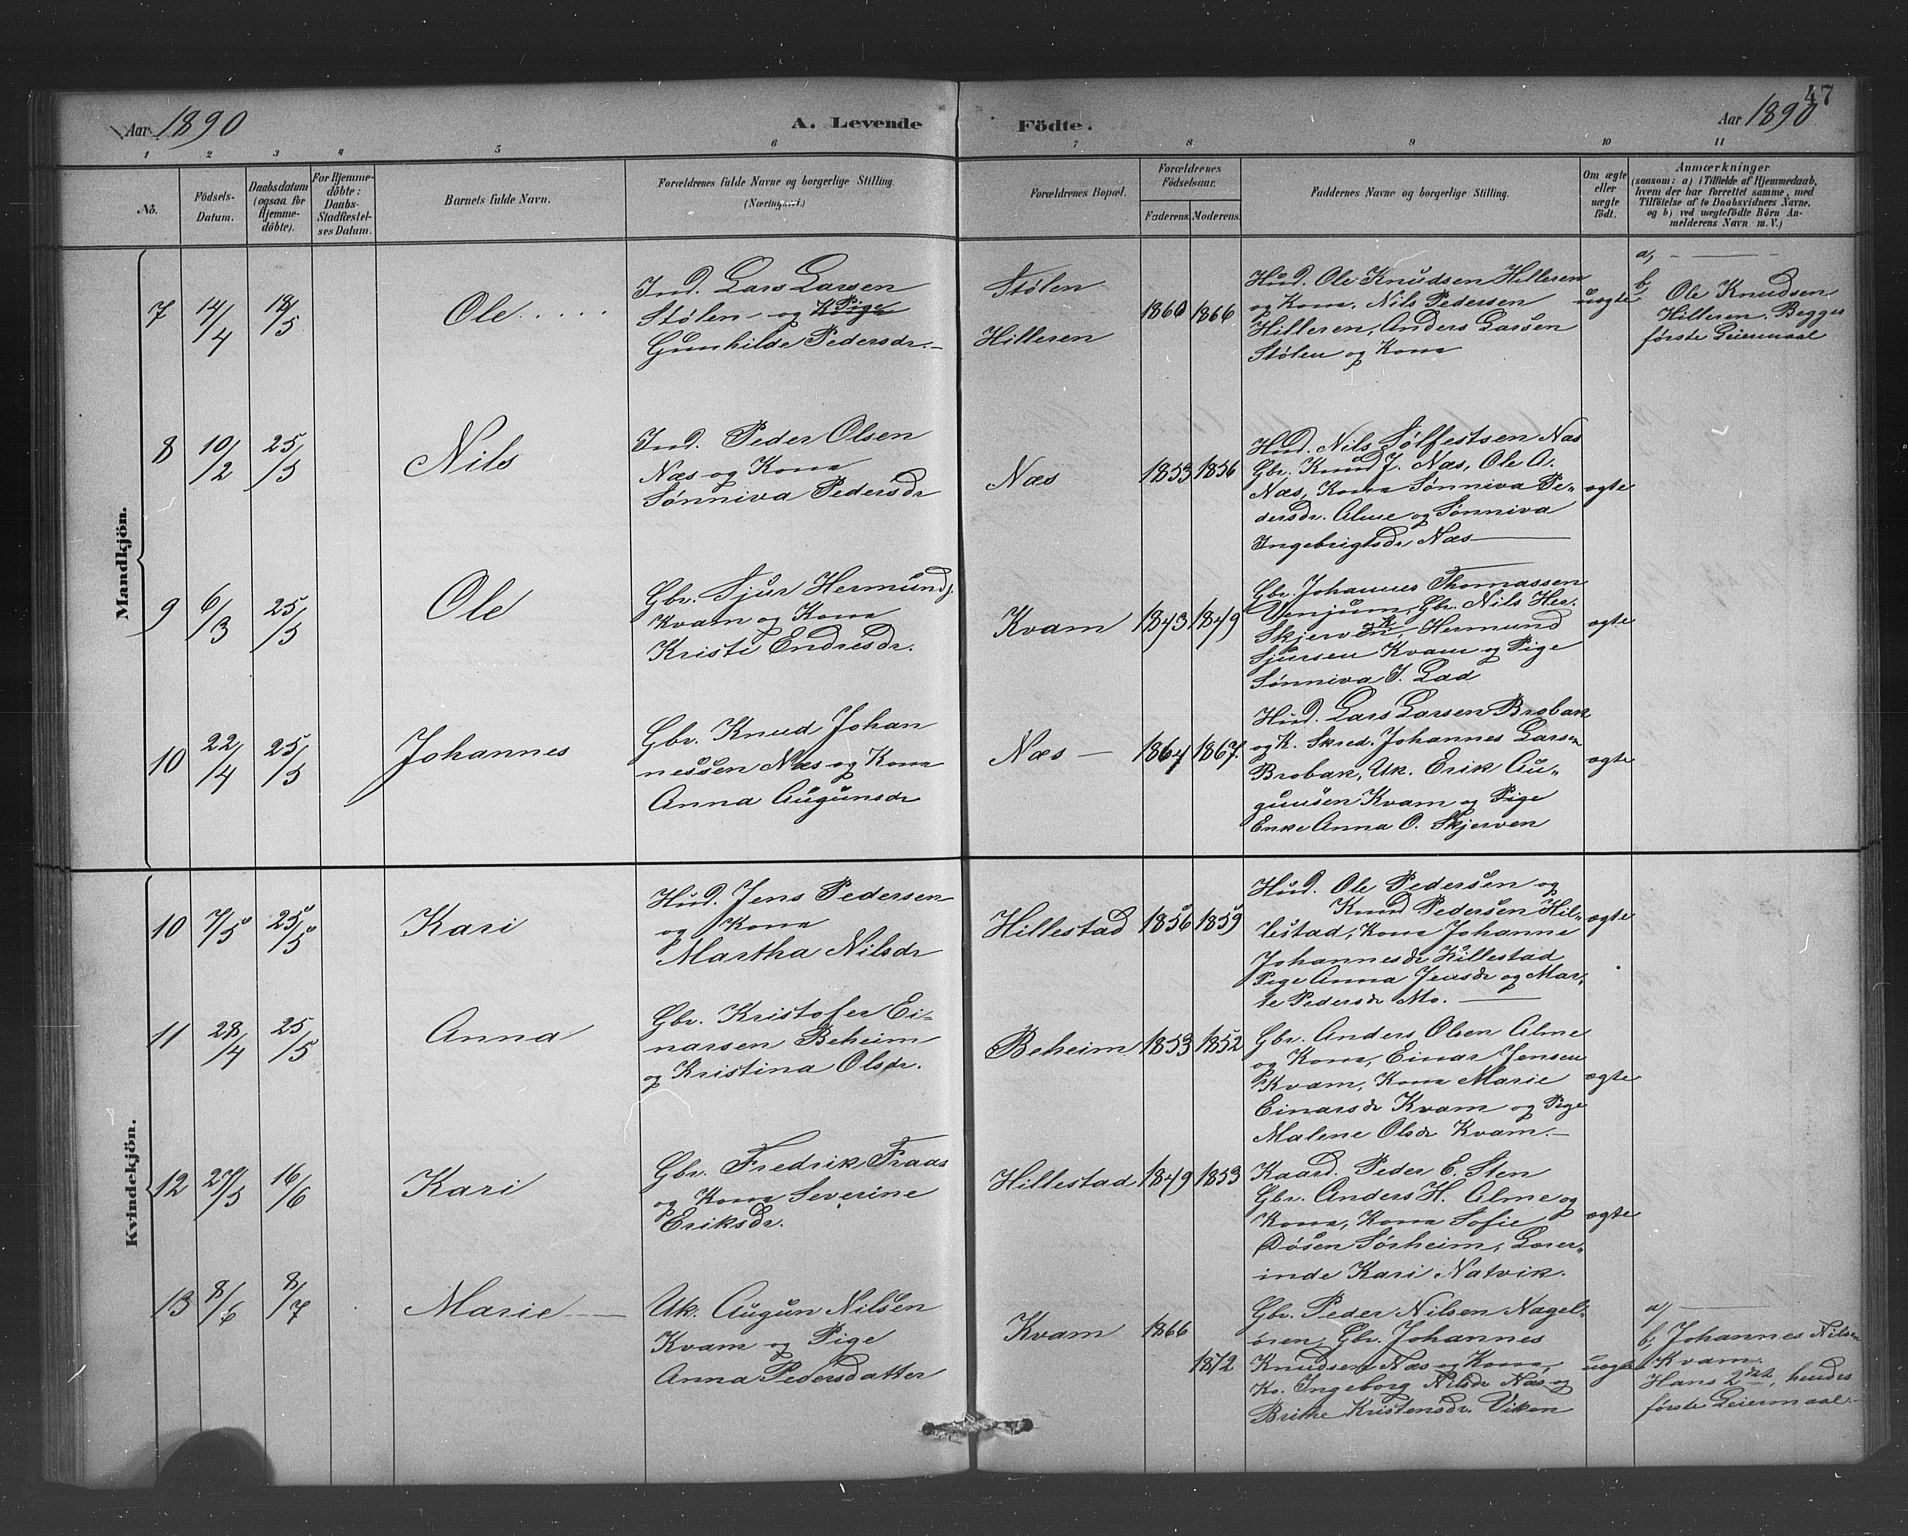 47
Aar 1890 A. Levende Födte. Aar 1890
1 2 3 4 5 6 7 8 9 10 11
No.
Födsels-
Datum.
Daabsdatum
(ogsaa for
Hjemme-
döbte).
For Hjemme-
döbte:
Daabs-
Stadfæstel-
ses Datum.
Barnets fulde Navn.
Forældrenes fulde Navne og borgerlige Stilling.
(Næringsvei.)
Forældrenes Bopæl.
Forældrenes
Födselsaar.
Faderens. Moderens.
Faddernes Navne og borgerlige Stilling.
Om ægte
eller
uægte
födt.
Anmærkninger
(saasom: a) i Tilfælde af Hjemmedaab,
hvem der har forrettet samme, med
Tilföielse af to Daabsvidners Navne,
og b) ved uægtefödte Börn An-
melderens Navn m. V.)
Mandkjön.
7 14/4 18/5 Ole
Ind. Lars Larsen
Stølen og Pige
Gunhilde Pedersdr.
Stølen
Hilleren
1860 1866
Hud. Ole Knudsen Hilleren
og Kona, Nils Pedersen
Hilleren, Anders Lassen
Stølen og Kona
uægte
a, —
b, Ole Knudsen
Hilleren. Begges
første Leiermaal
8 10/2 25/5 Nils
Ind. Peder Olsen
Næs og Kona
Sønniva Pedersdr
Næs
1853 1856
Hud. Nils Sølfestsen Næs
Gbr. Knud J. Næs, Ole A.
Næs, Kona Sønniva Pe-
dersdr. Alme og Sønniva
Ingebrigtsdr Næs
ægte
9 6/3 25/5 Ole
Gbr. Sjur Hermundj.
Kvam og Kona
Kristi Endresdr.
Kvam
1843 1849
Gbr. Johannes Thomassen
Venjum, Gbr. Nils Her.
Skjerven, Hermund
Sjursen Kvam og Pige
Sønniva J. Lad
ægte
10 22/4 25/5 Johannes
Gbr. Knud Johan
nessen Næs og Kona
Anna Augunsdr
Næs
1864 1867.
Hud. Lars Larsen Brobak
og K. Skred. Johannes Larsen
Brobak, Uk. Erik Au-
gunsen Kvam og Pige
Enke Anna O. Skjerven
ægte
Kvindekjön.
10 7/5 25/5 Kari
Hud. Jens Pedersen
og Kona
Martha Nilsdr
Hillestad
1856 1859
Hud. Ole Pedersen og
Knud Pedersen Hil-
lestad, Kona Johanne
Johannesdr Hillestad
Pige Anna Jensdr og Mar-
te Pedersdr Mo.
ægte
11 28/4 25/5 Anna
Gbr. Kristofer Ei-
narsen Beheim
og Kristina Olsdr.
Beheim
1853 1852
Gbr. Anders Olsen Alme
og Kona, Einar Jensen
Kvam, Kona Marie
Einarsdr Kvam og Pige
Malene Olsdr Kvam.
ægte
12 27/5 16/6 Kari
Gbr. Fredrik Fraas
og Kona Severine
Eriksdr.
Hillestad
1849 1853
Kaard. Peder E. Sten
Gbr. Anders H. Alme og
Kona, Kona Sofie
Døsen Sørheim, Lærer-
inde Kari Natvik.
ægte
13 8/6 8/7 Marie
Uk. Augun Nilsen
Kvam og Pige
Anna Pedersdatter
Kvam
1866
1872
Gbr. Peder Nilsen Nagel-
øren, Gbr. Johannes
Knudsen Næs og Kona,
Ko. Ingeborg Nilsdr Næs og
Brithe Kristensdr. Viken
uægte
a, —
b, Johannes Nilsen
Kvam.
Hans 2det, hendes
første Leiermaal